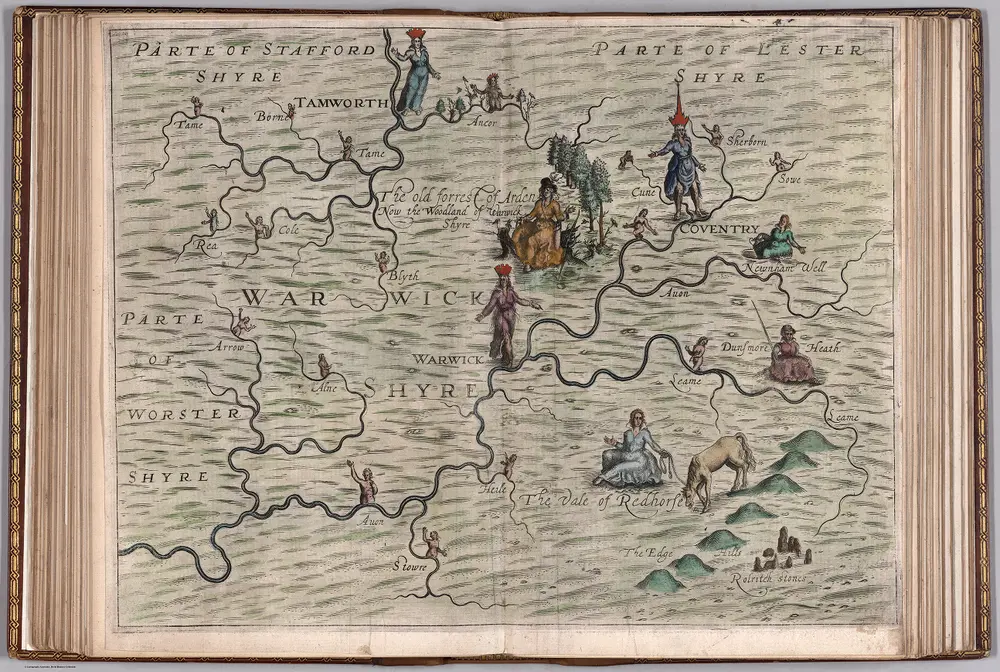 PARTE OF STAFFORD
SHYRE
PARTE OF LESTER
SHYRE
TAMWORTH
Tame
Borne
Ancor
Tame
Sherborn
Sowe
Cune
The old forrest of Arden
Now the Woodland of Warwick
Shyre
COVENTRY
Rea
Cole
Newnham Well
Blyth
Auon
WARWICK
SHYRE
PARTE
OF
WORSTER
SHYRE
Arrow
Alne
WARWICK
Dunsmore Heath
Leame
Leame
The Vale of Redhorse
Heile
Auon
Stowre
The Edge Hills
Rolritch stones